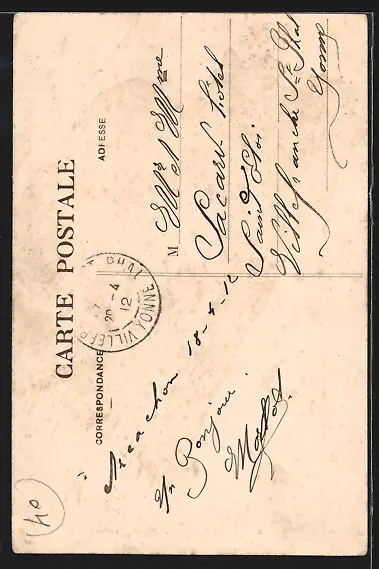 CARTE POSTALE
CORRESPONDANCE
ADRESSE
Arcachon 18-4-12
Un Bonjour
M Mr et Mme
Sacard hotel
Saint Eloi
Villefranche St Phal
Yonne
VILLEFR PHAL
20-4
12
YONNE
40